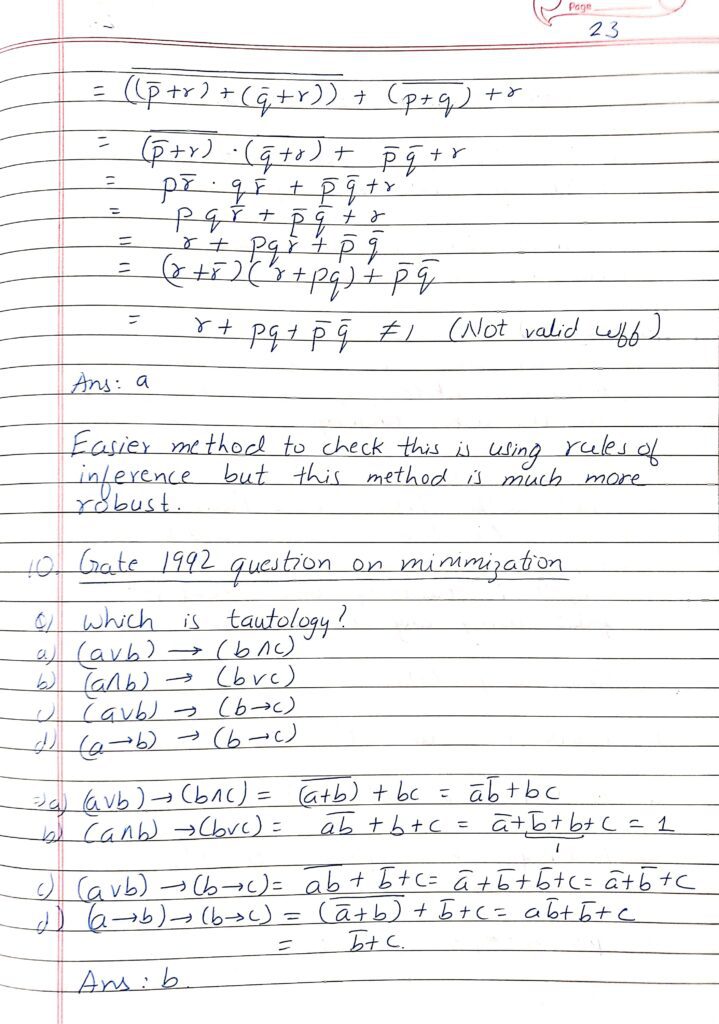 Page
23
= ((p̅+r) + (q̅+r))‾ + (p+q)‾ + r
= (p̅+r)‾ · (q̅+r)‾ + p̅ q̅ + r
= p r̅ · q r̅ + p̅ q̅ + r
= p q r̅ + p̅ q̅ + r
= r + p q r̅ + p̅ q̅
= (r + r̅) (r + pq) + p̅ q̅
= r + pq + p̅ q̅ ≠ 1 (Not valid wff)
Ans: a
Easier method to check this is using rules of
inference but this method is much more
robust.
10. Gate 1992 question on minimization
Q) Which is tautology?
a) (a∨b) → (b∧c)
b) (a∧b) → (b∨c)
c) (a∨b) → (b→c)
d) (a→b) → (b→c)
⇒ a) (a∨b) → (b∧c) = (a+b)‾ + bc = a̅ b̅ + bc
b) (a∧b) → (b∨c) = (ab)‾ + b + c = a̅ + b̅ + b + c = 1
1
c) (a∨b) → (b→c) = (ab)‾ + b̅ + c = a̅ + b̅ + b̅ + c = a̅ + b̅ + c
d) (a→b) → (b→c) = (a̅+b)‾ + b̅ + c = a b̅ + b̅ + c
= b̅ + c.
Ans: b.